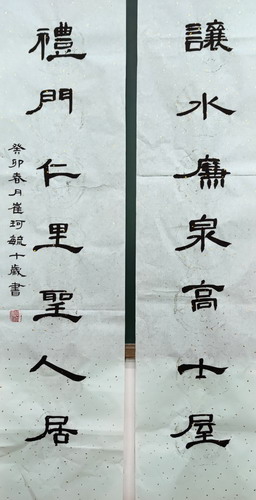 讓水廉泉高士屋
禮門仁里聖人居
癸卯春月崔珂毓十歲書